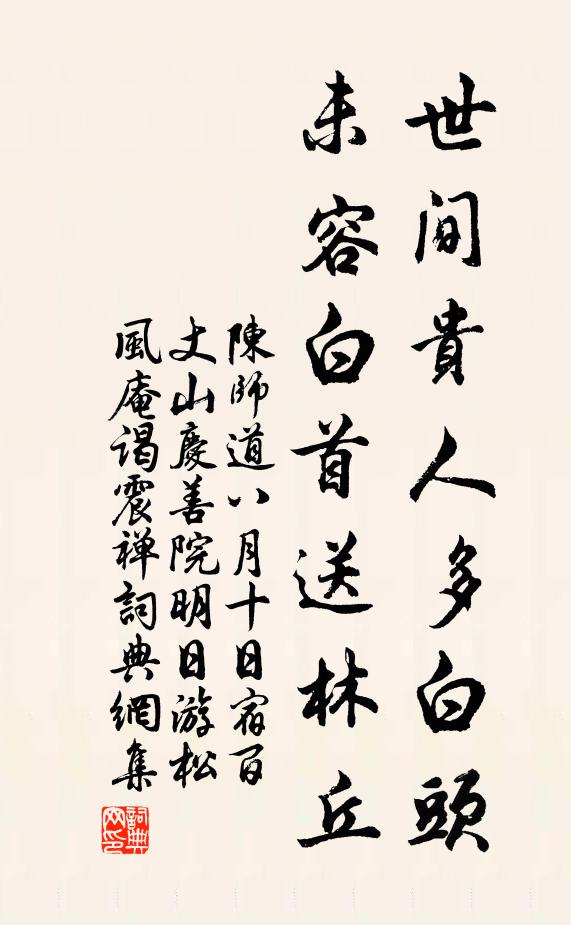 世間貴人多白頭
未容白首送林丘
陳師道八月十日宿百
丈山慶善院明日游松
風庵謁震禅詞典網集
詞典网印